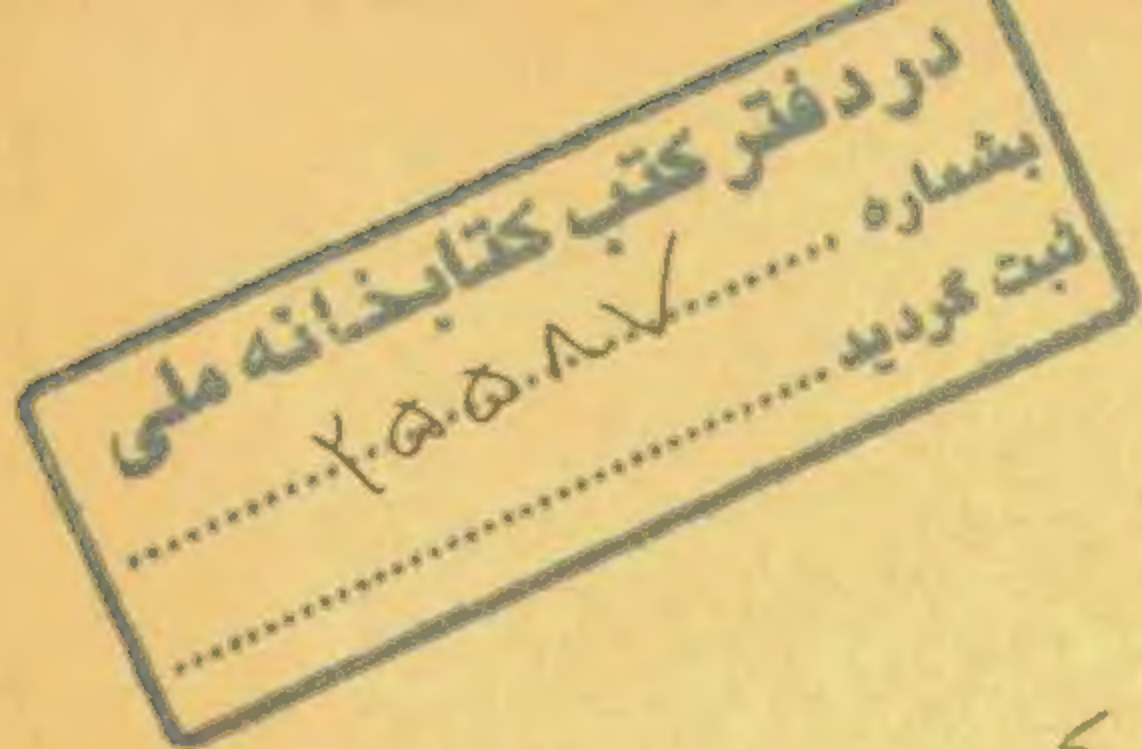 در دفتر کتب کتابخانه ملی
بشماره ........ ۲۵۵۸۷ ........
ثبت گردید ........................